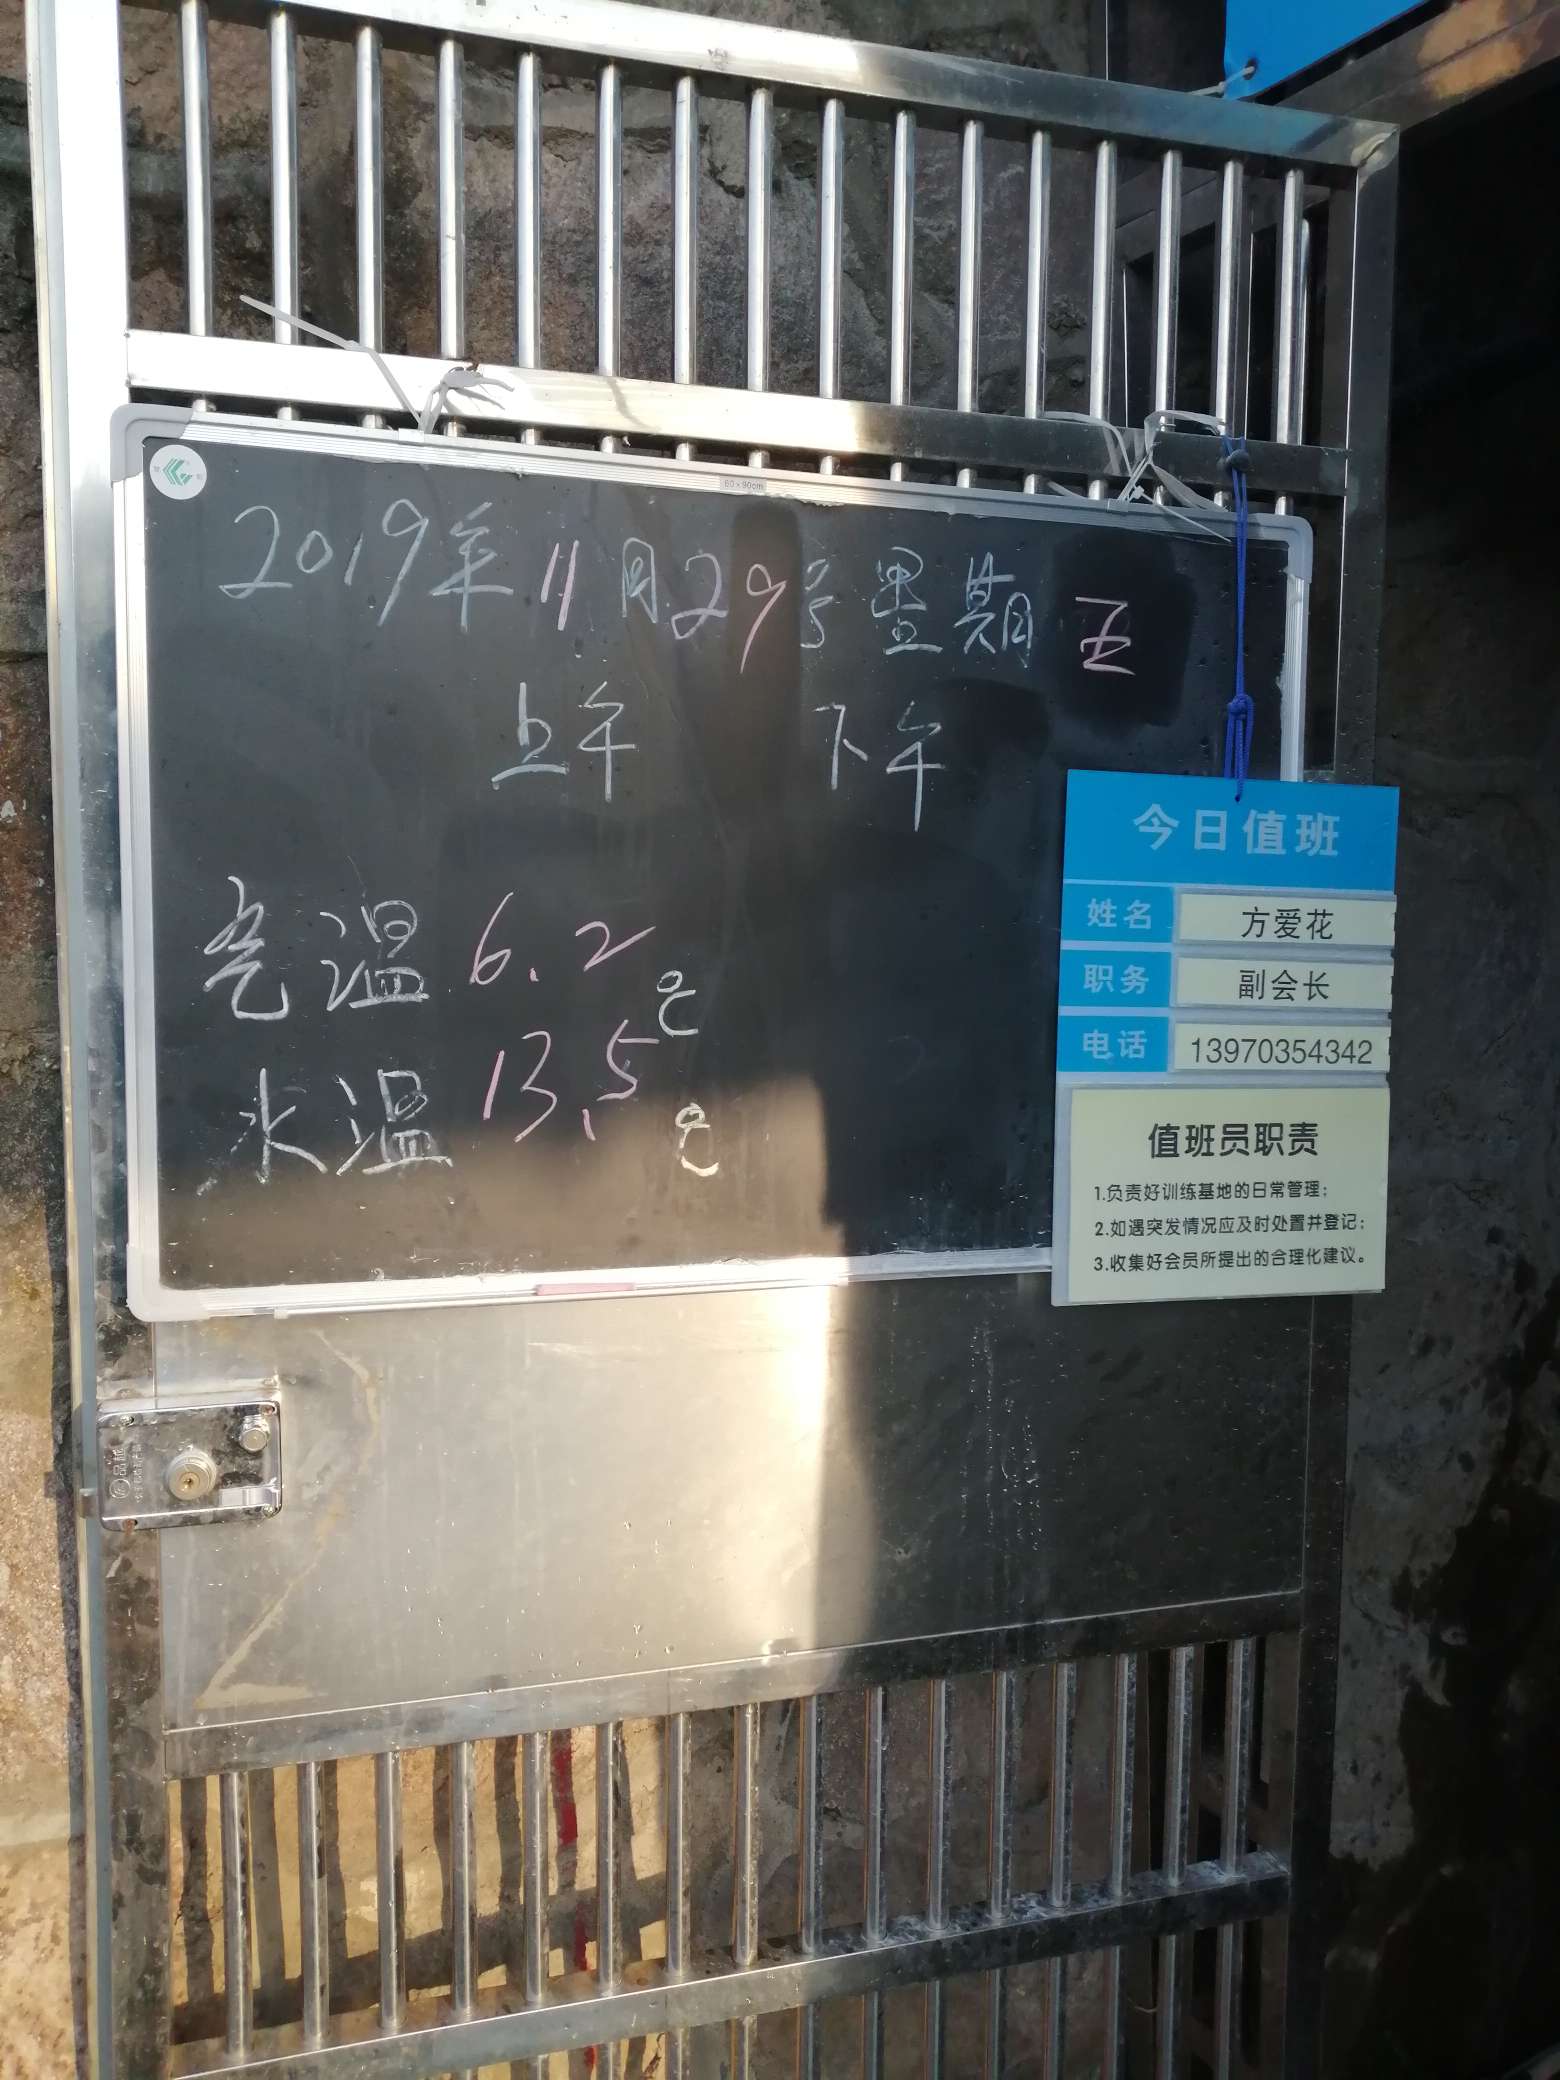 60×90cm
2019年11月29号星期五
上午 下午
气温 6.2℃
水温 13.5℃
今日值班
姓名 方爱花
职务 副会长
电话 13970354342
值班员职责
1.负责好训练基地的日常管理;
2.如遇突发情况应及时处置并登记;
3.收集好会员所提出的合理化建议。